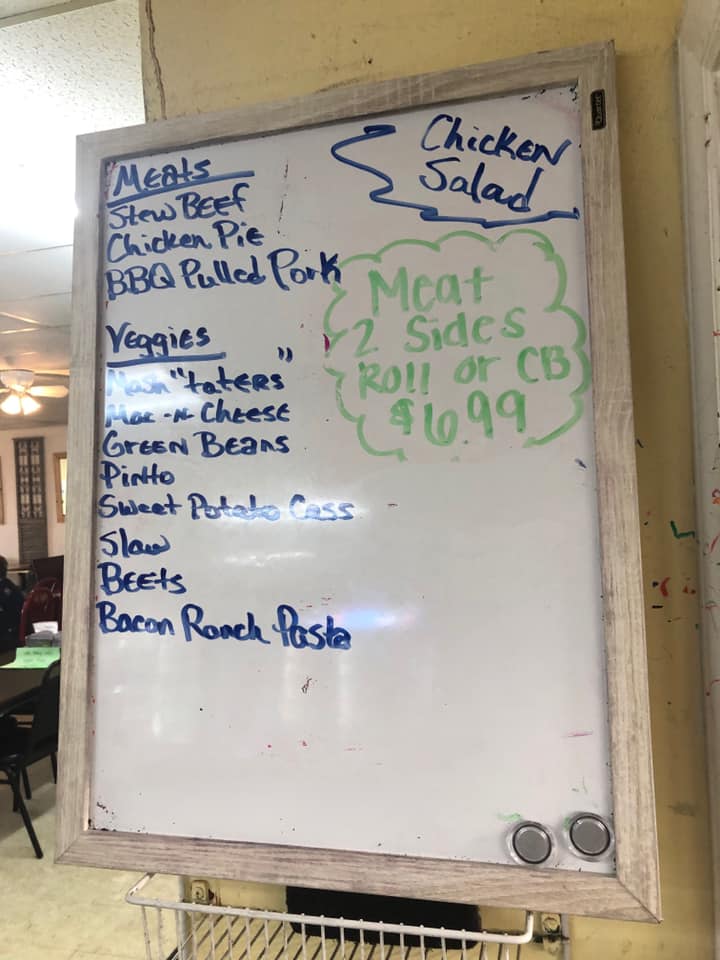 Quartet
Chicken
Salad
Meats
Stew Beef
Chicken Pie
BBQ Pulled Pork
Meat
2 Sides
Roll or CB
$6.99
Veggies
Mash "taters"
Mac-N Cheese
Green Beans
Pinto
Sweet Potato Cass
Slaw
Beets
Bacon Ranch Pasta